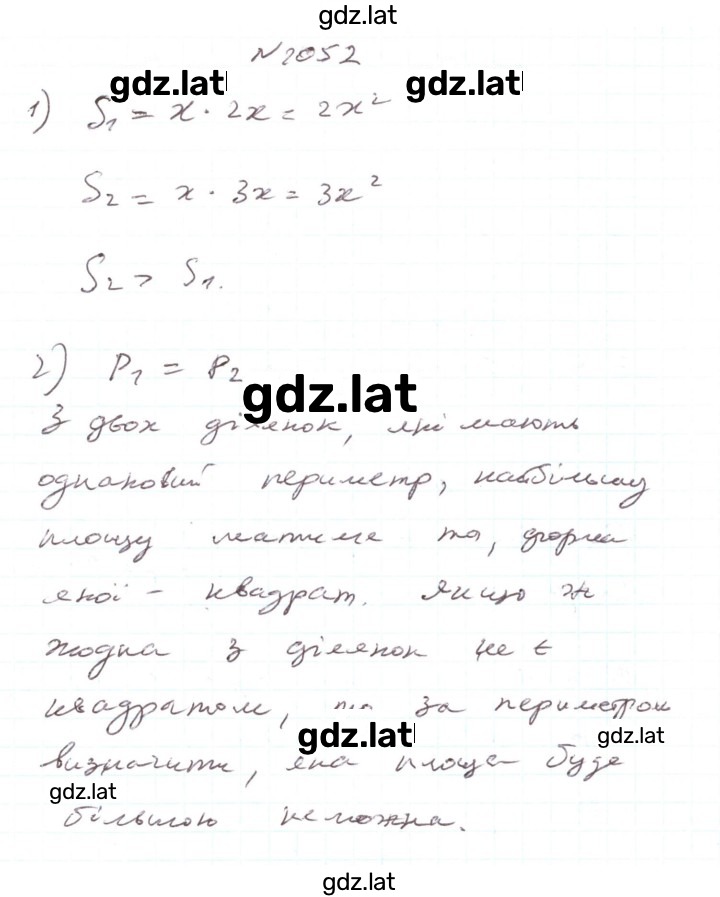 gdz.lat
№ 2052
gdz.lat gdz.lat
1) S₁ = x · 2x = 2x²
S₂ = x · 3x = 3x²
S₂ > S₁.
2) P₁ = P₂
gdz.lat
З двох ділянок, які мають
однаковий периметр, найбільшу
площу матиме та, форма
якої - квадрат. Якщо ж
жодна з ділянок не є
квадратом, то за периметром
gdz.lat gdz.lat
визначити, яка площа буде
gdz.lat
більшою неможна.
gdz.lat